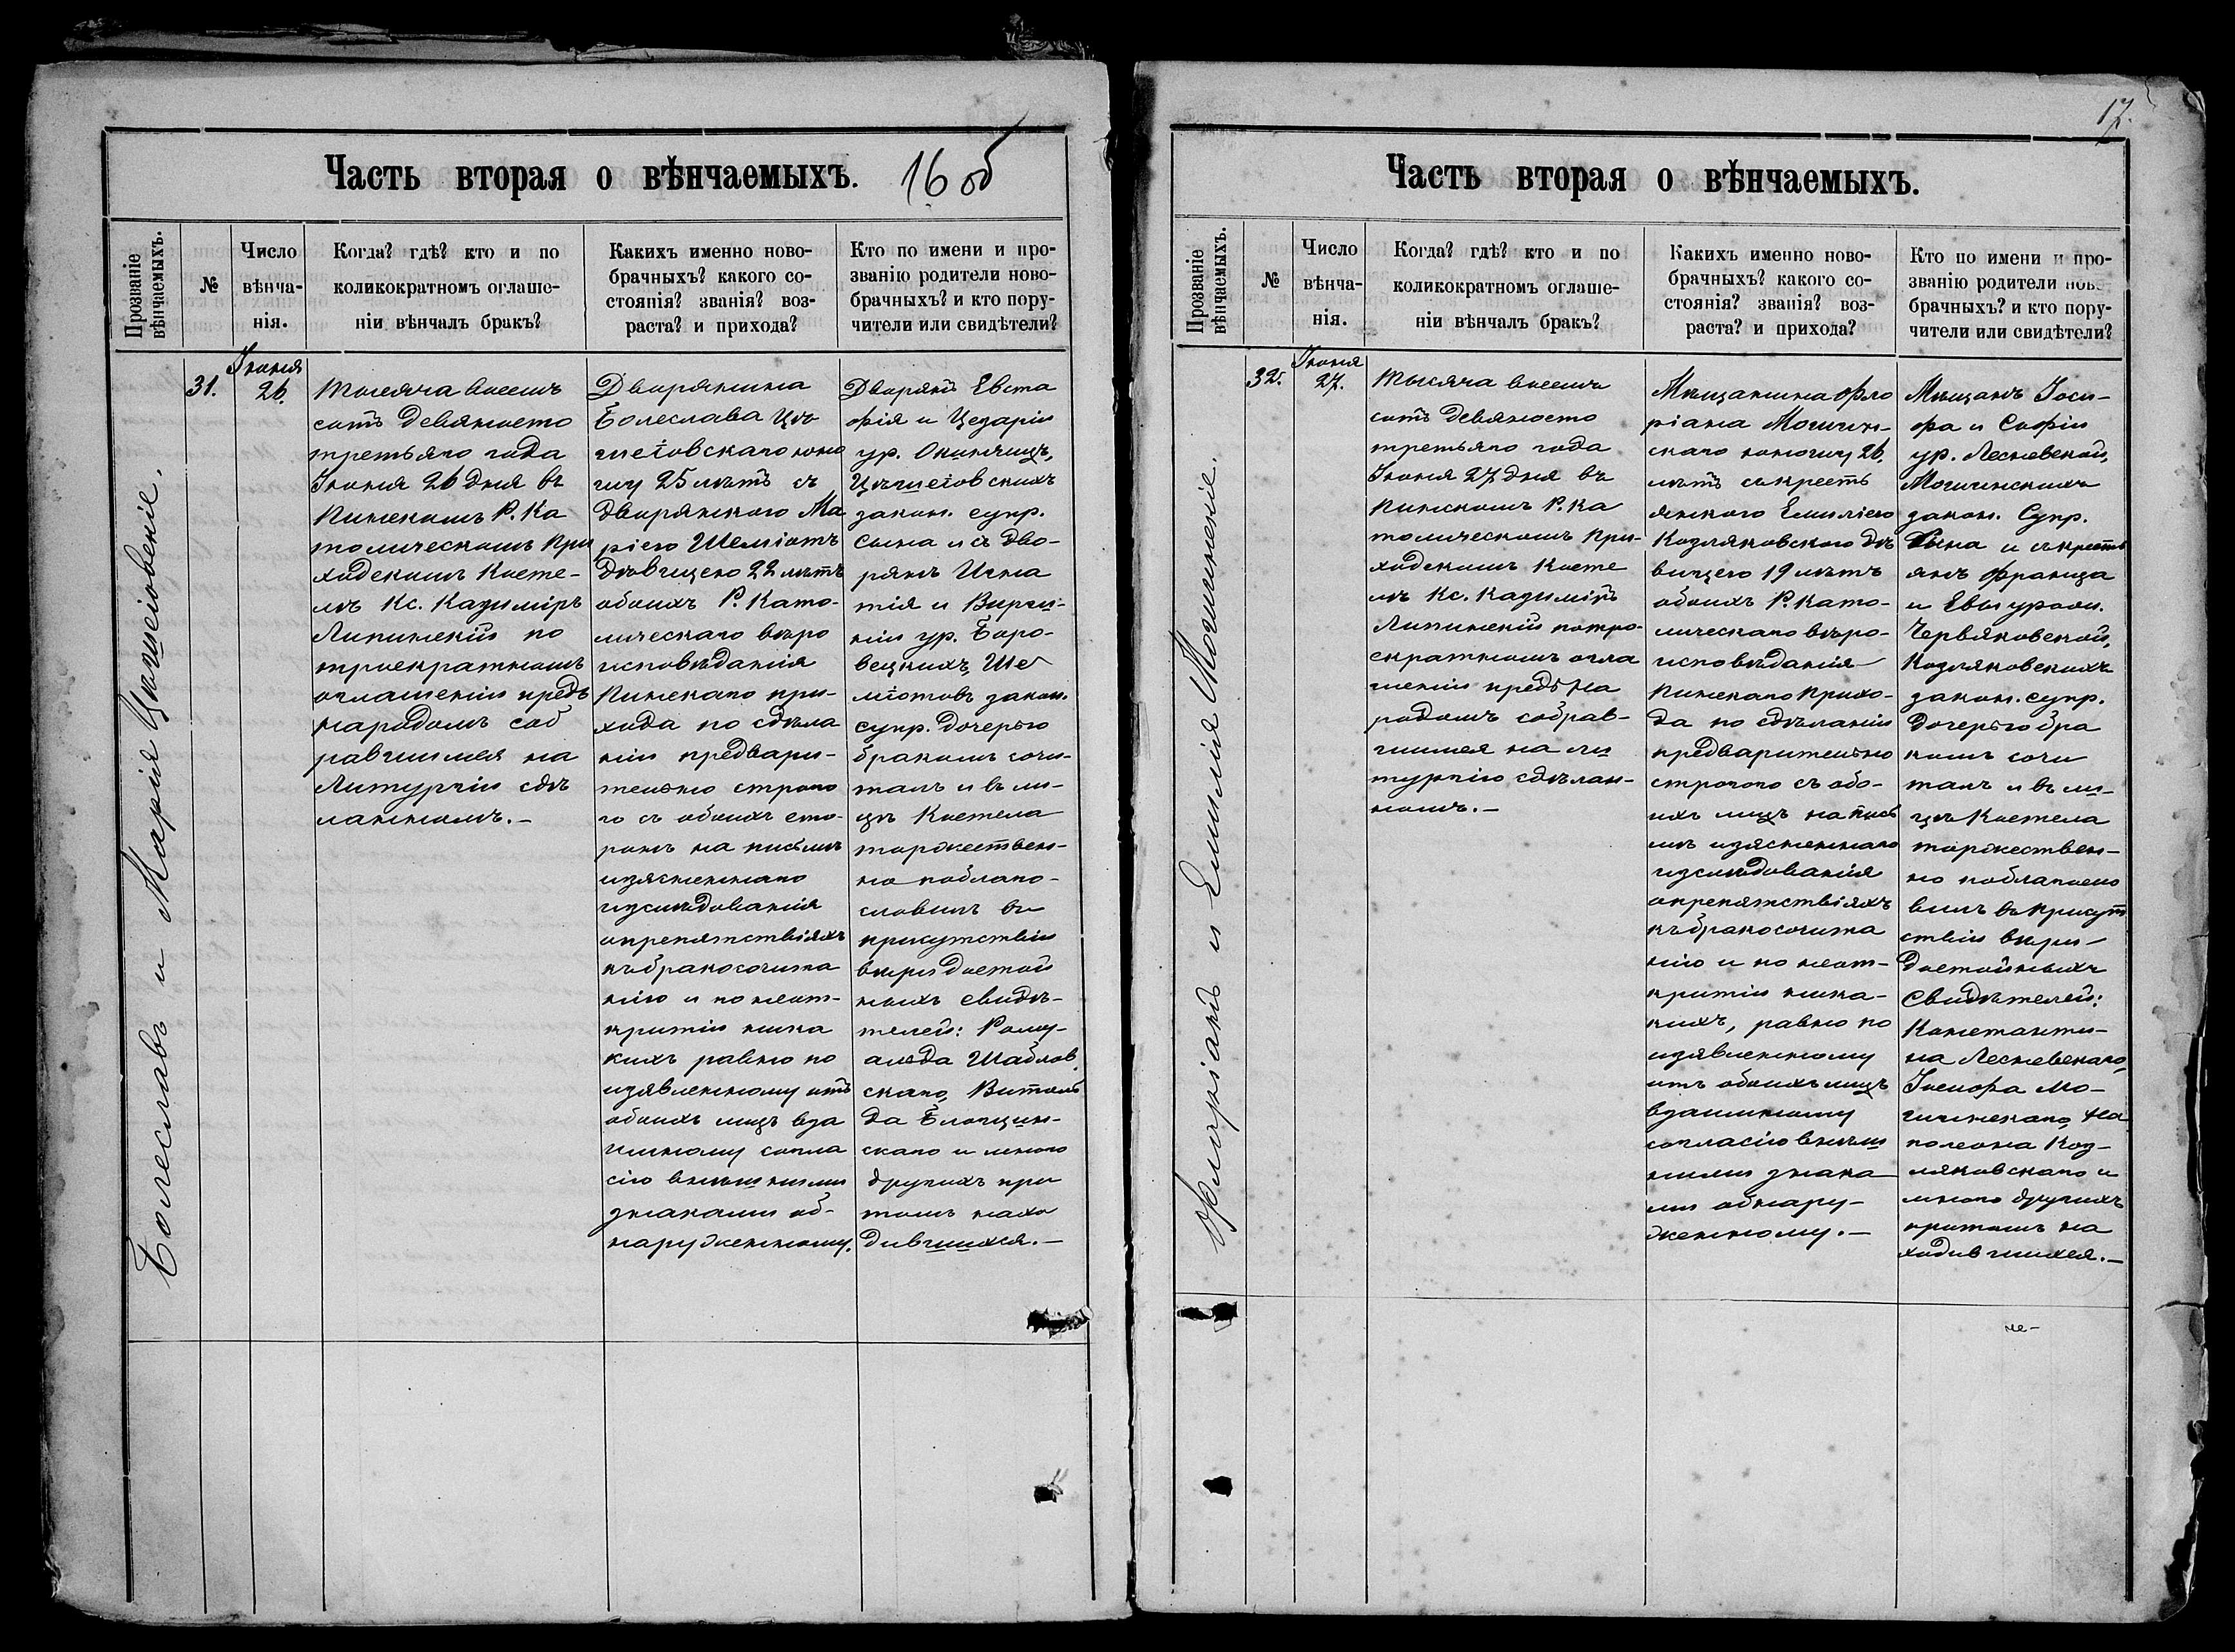 Часть вторая о вѣнчаемыхъ. 16 об
Прозваніе
вѣнчаемыхъ.
№
Число
вѣнча-
нія.
Когда? гдѣ? кто и по
коликократномъ оглаше-
ніи вѣнчалъ бракъ?
Какихъ именно ново-
брачныхъ? какого со-
стоянія? званія? воз-
раста? и прихода?
Кто по имени и про-
званію родители ново-
брачныхъ? и кто пору-
чители или свидѣтели?
Болеславъ и Марія
31.
Іюня
26.
Тысяча восемь
сотъ девяносто
третьяго года
Іюня 26 дня въ
Пинскомъ Р. Ка
толическомъ При
ходскомъ Косте-
лѣ Кс. Казиміръ
Липинскій по
троекратномъ
оглашеніи предъ
народомъ соб
равшимся на
Литургіи сдѣ
ланномъ. —
Дворянина
Болеслава Цѣ
шеіовскаго юно
шу 25 лѣтъ съ
дворянкою Ма
ріею Шеміотъ
дѣвицею 22 лѣтъ
обоихъ Р. Като-
лическаго вѣро
исповѣданія
Пинскаго при-
хода по сдѣла
ніи предвари-
тельно строго
го съ обоихъ сто-
ронъ на письмѣ
изясненнаго
изслѣдованія
опрепятствіяхъ
къ бракосочита
нію и по неот-
крытіи ника
кихъ равно по
изявленному отъ
обоихъ лицъ вза
имному согла
сію внѣшними
знаками об-
наруженному.
Дворянъ Евста
фія и Цезаріи
ур.
Цѣшеіовскихъ
закон. супр.
Сына и съ дво-
рянъ Игна
тія и Вирги-
ніи ур. Боро-
вецкихъ, Ше
міотовъ закон.
супр. дочерью
бракомъ сочи-
талъ и въ ли-
цѣ Костела
торжествен-
но поблаго-
словилъ въ
присутствіи
вѣридостой
ныхъ свидѣ-
телей: Рому-
альда Шаблов
скаго, Витоль
да
скаго и много
другихъ при
томъ нахо
дившихся. —
17.
Часть вторая о вѣнчаемыхъ.
Прозваніе
вѣнчаемыхъ.
№
Число
вѣнча-
нія.
Когда? гдѣ? кто и по
коликократномъ оглаше-
ніи вѣнчалъ бракъ?
Какихъ именно ново-
брачныхъ? какого со-
стоянія? званія? воз-
раста? и прихода?
Кто по имени и про-
званію родители ново-
брачныхъ? и кто пору-
чители или свидѣтели?
Флоріанъ и Емилія
32.
Іюня
27.
Тысяча восемь
сотъ девяносто
третьяго года
Іюня 27 дня въ
Пинскомъ Р. Ка
толическомъ При-
ходскомъ Косте
лѣ Кс. Казиміръ
Липинскій потро-
екратномъ огла
шеніи предъ на
родомъ собрав-
шимся на ли
тургію сдѣлан-
номъ. —
Мѣщанина Фло
ріана Могилин-
скаго юношу 26.
лѣтъ съ крестъ
янкою Емиліею
Козляковскою дѣ
вицею 19 лѣтъ
обоихъ Р. Като-
лическаго вѣро-
исповѣданія
Пинскаго Прихо-
да по сдѣланіи
предварительно
строгого съ обо-
ихъ лицъ на пись
мѣ изясненнаго
изслѣдованія
опрепятствіяхъ
къ бракосочита
нію и по неот-
крытіи ника-
кихъ, равно по
изявленному
отъ обоихъ лицъ
взаимному
согласію внѣш
ними знака
ми обнару-
женному. —
Мѣщанъ Іоси-
фа и Софіи
ур. Лесневской,
Могилинскихъ
закон. Супр.
Сына и съ крестъ
янъ Франца
и Евы урож.
Червяковской,
Козляковскихъ
закон. супр.
дочерью бра
комъ сочи
талъ и въ ли-
цѣ Костела
торжествен-
но поблагосло
вилъ въ присут
ствіи вѣри-
достойныхъ
Свидѣтелей:
Константи-
на Лесневскаго,
Іосифа Мо-
гилинскаго, На
полеона Коз-
ляковскаго и
много другихъ
притомъ на
ходившихся. —